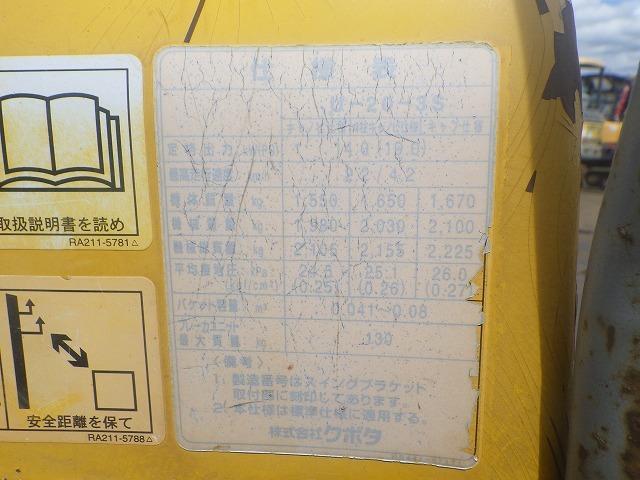 仕様表
U-20-3S
キャノピ仕様
キャブ仕様
定格出力
14.0
最高走行速度
2.2 4.2
機体質量 kg 1,550 1,650 1,670
機械質量 kg 1,980 2,030 2,100
機械総質量 kg 2,105 2,155 2,225
平均接地圧 kPa 24.6 25.1 26.0
(kgf/cm²) (0.25) (0.26) (0.27)
バケット容量 m³ 0.041~0.08
ブレーカユニット
最大質量 kg 130
〈備考〉
1. 製造番号はスイングブラケット
取付面に刻印してあります。
2. 本仕様は標準仕様に適用する。
株式会社クボタ
取扱説明書を読め
RA211-5781△
安全距離を保て
RA211-5788△